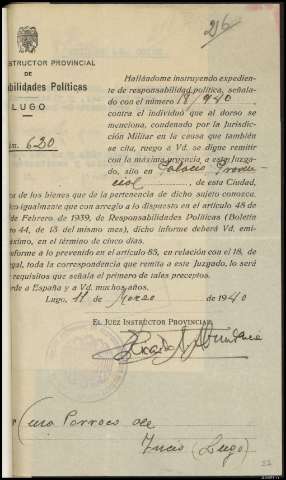 26
STRUCTOR PROVINCIAL
DE
abilidades Políticas
LUGO
úm. 630
Hallándome instruyendo expedien-
te de responsabilidad política, señala-
do con el número 18/940,
contra el individuo que al dorso se
menciona, condenado por la Jurisdic-
ción Militar en la causa que también
se cita, ruego a Vd. se digne remitir
con la máxima urgencia, a este Juzga-
do, sito en Palacio Provin-
cial, de esta Ciudad,
de los bienes que de la pertenencia de dicho sujeto conozca.
igualmente que con arreglo a lo dispuesto en el artículo 48 de
de Febrero de 1939, de Responsabilidades Políticas (Boletín
44, de 13 del mismo mes), dicho informe deberá Vd. emi-
máximo, en el término de cinco días.
nforme a lo prevenido en el artículo 83, en relación con el 18, de
egal, toda la correspondencia que remita a este Juzgado, lo será
requisitos que señala el primero de tales preceptos.
rde a España y a Vd. muchos años.
Lugo, 11 de Marzo de 1940
EL JUEZ INSTRUCTOR PROVINCIAL
Cura Párroco de
Incio (Lugo)